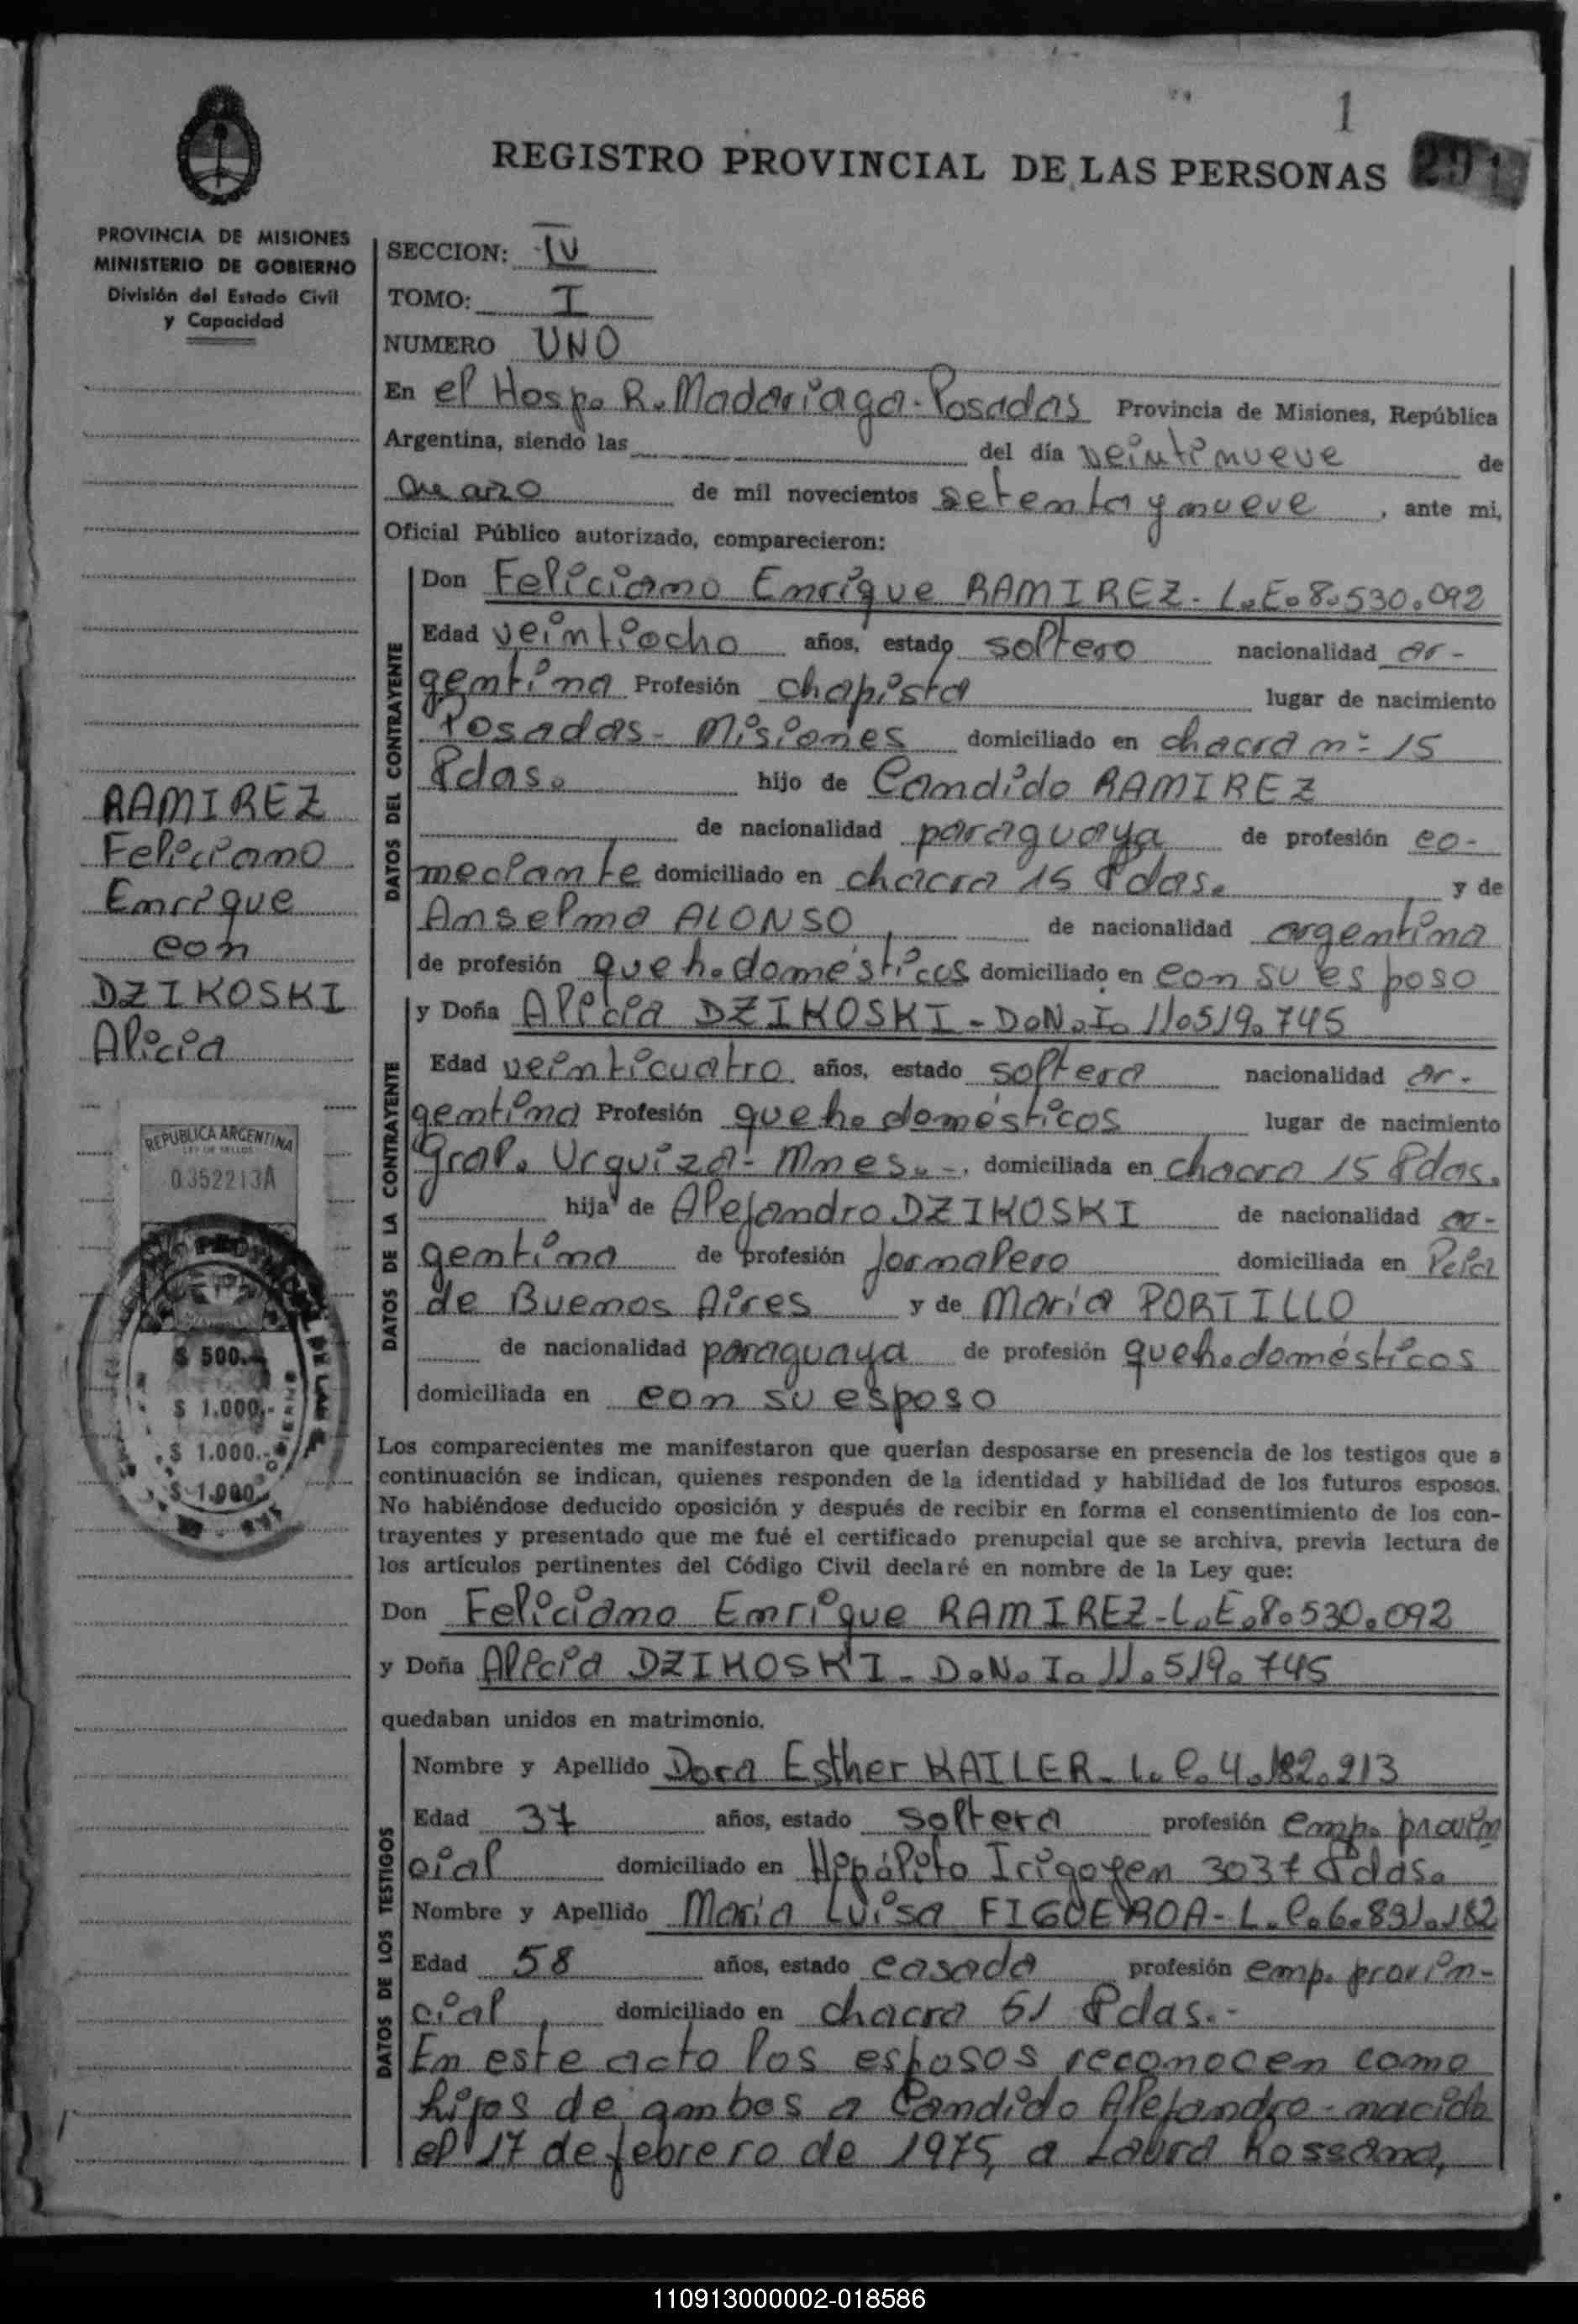 1
REGISTRO PROVINCIAL DE LAS PERSONAS
PROVINCIA DE MISIONES
MINISTERIO DE GOBIERNO
División del Estado Civil
y Capacidad
SECCION: IV
TOMO: I
NUMERO UNO
En el Hosp. R. Madariaga - Posadas Provincia de Misiones, República
Argentina, siendo las del día veintinueve de
marzo de mil novecientos setenta y nueve, ante mi,
Oficial Público autorizado, comparecieron:
DATOS DEL CONTRAYENTE
Don Feliciano Enrique RAMIREZ - L.E. 8.530.092
Edad veintiocho años, estado soltero nacionalidad ar-
gentina Profesión chapista lugar de nacimiento
Posadas - Misiones domiciliado en chacra nº 15
Pdas. hijo de Candido RAMIREZ
de nacionalidad paraguaya de profesión co-
meciante domiciliado en chacra 15 Pdas. y de
Anselma ALONSO de nacionalidad argentina
de profesión queh. domésticos domiciliado en con su esposo
RAMIREZ
Feliciano
Enrique
con
DZIKOSKI
Alicia
DATOS DE LA CONTRAYENTE
y Doña Alicia DZIKOSKI - D.N.I. 11.519.745
Edad veinticuatro años, estado soltera nacionalidad ar-
gentina Profesión queh. domésticos lugar de nacimiento
Gral. Urquiza - Mnes. - domiciliada en chacra 15 Pdas.
hija de Alejandro DZIKOSKI de nacionalidad ar-
gentina de profesión jornalero domiciliada en Pcia
de Buenos Aires y de Maria PORTILLO
de nacionalidad paraguaya de profesión queh. domésticos
domiciliada en con su esposo
REPUBLICA ARGENTINA
LEY DE SELLOS
0.352213A
$ 500.-
$ 1.000.-
$ 1.000.-
$ 1.000.-
Los comparecientes me manifestaron que querían desposarse en presencia de los testigos que a
continuación se indican, quienes responden de la identidad y habilidad de los futuros esposos.
No habiéndose deducido oposición y después de recibir en forma el consentimiento de los con-
trayentes y presentado que me fué el certificado prenupcial que se archiva, previa lectura de
los artículos pertinentes del Código Civil declaré en nombre de la Ley que:
Don Feliciano Enrique RAMIREZ - L.E. 8.530.092
y Doña Alicia DZIKOSKI - D.N.I. 11.519.745
quedaban unidos en matrimonio.
DATOS DE LOS TESTIGOS
Nombre y Apellido Dora Esther KAILER - L.C. 4.182.913
Edad 37 años, estado soltera profesión emp. provin
cial domiciliado en Hipólito Irigoyen 3037 Pdas.
Nombre y Apellido Maria Luisa FIGUEROA - L.C. 6.891.182
Edad 58 años, estado casada profesión emp. provin-
cial domiciliado en chacra 61 Pdas. -
En este acto los esposos reconocen como
hijos de ambos a Candido Alejandro - nacido
el 17 de febrero de 1975, a Laura Rossana,
110913000002-018586